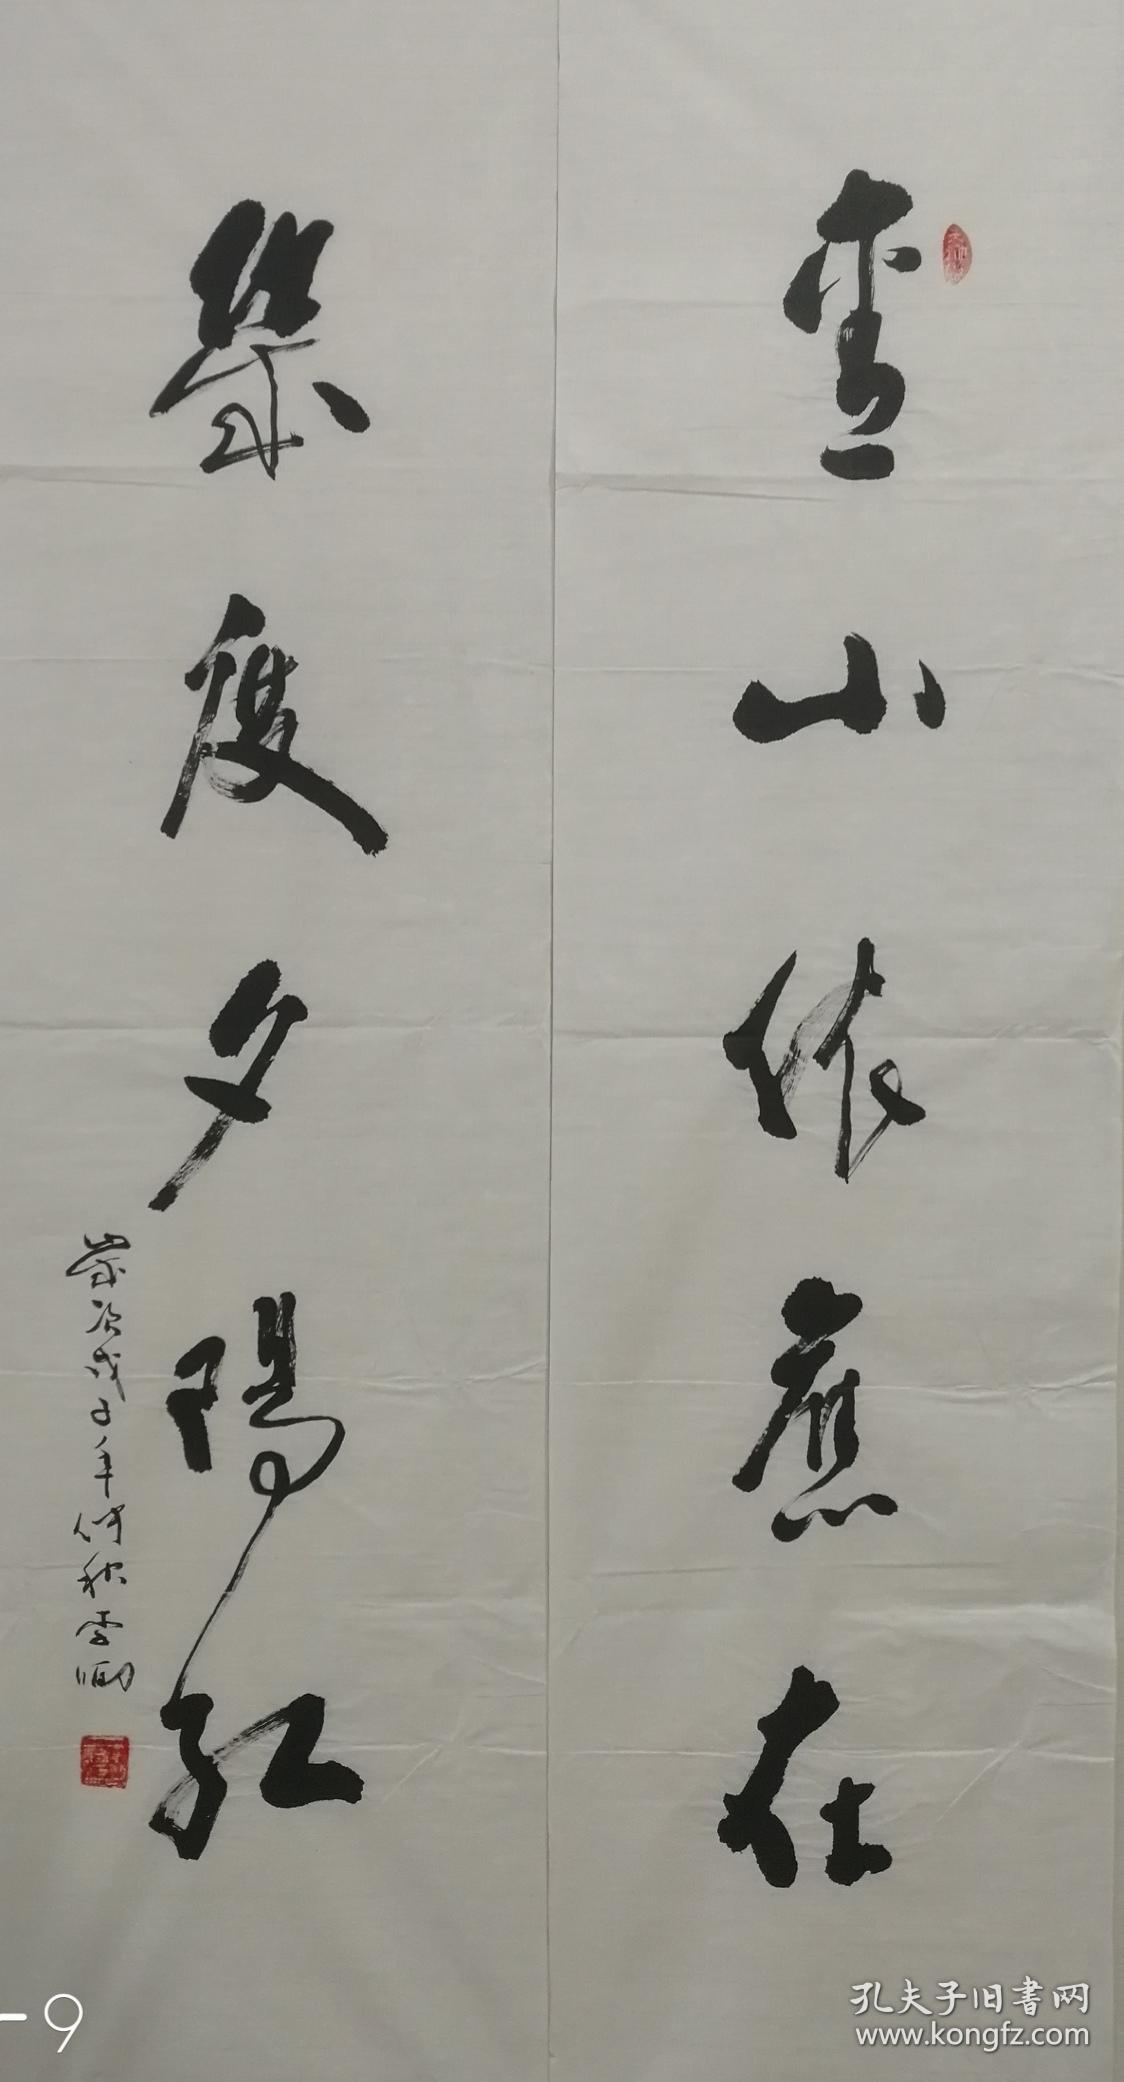 青山依舊在
幾度夕陽紅
歲次戊子年仲秋李
孔夫子旧書网
www.kongfz.com
-9